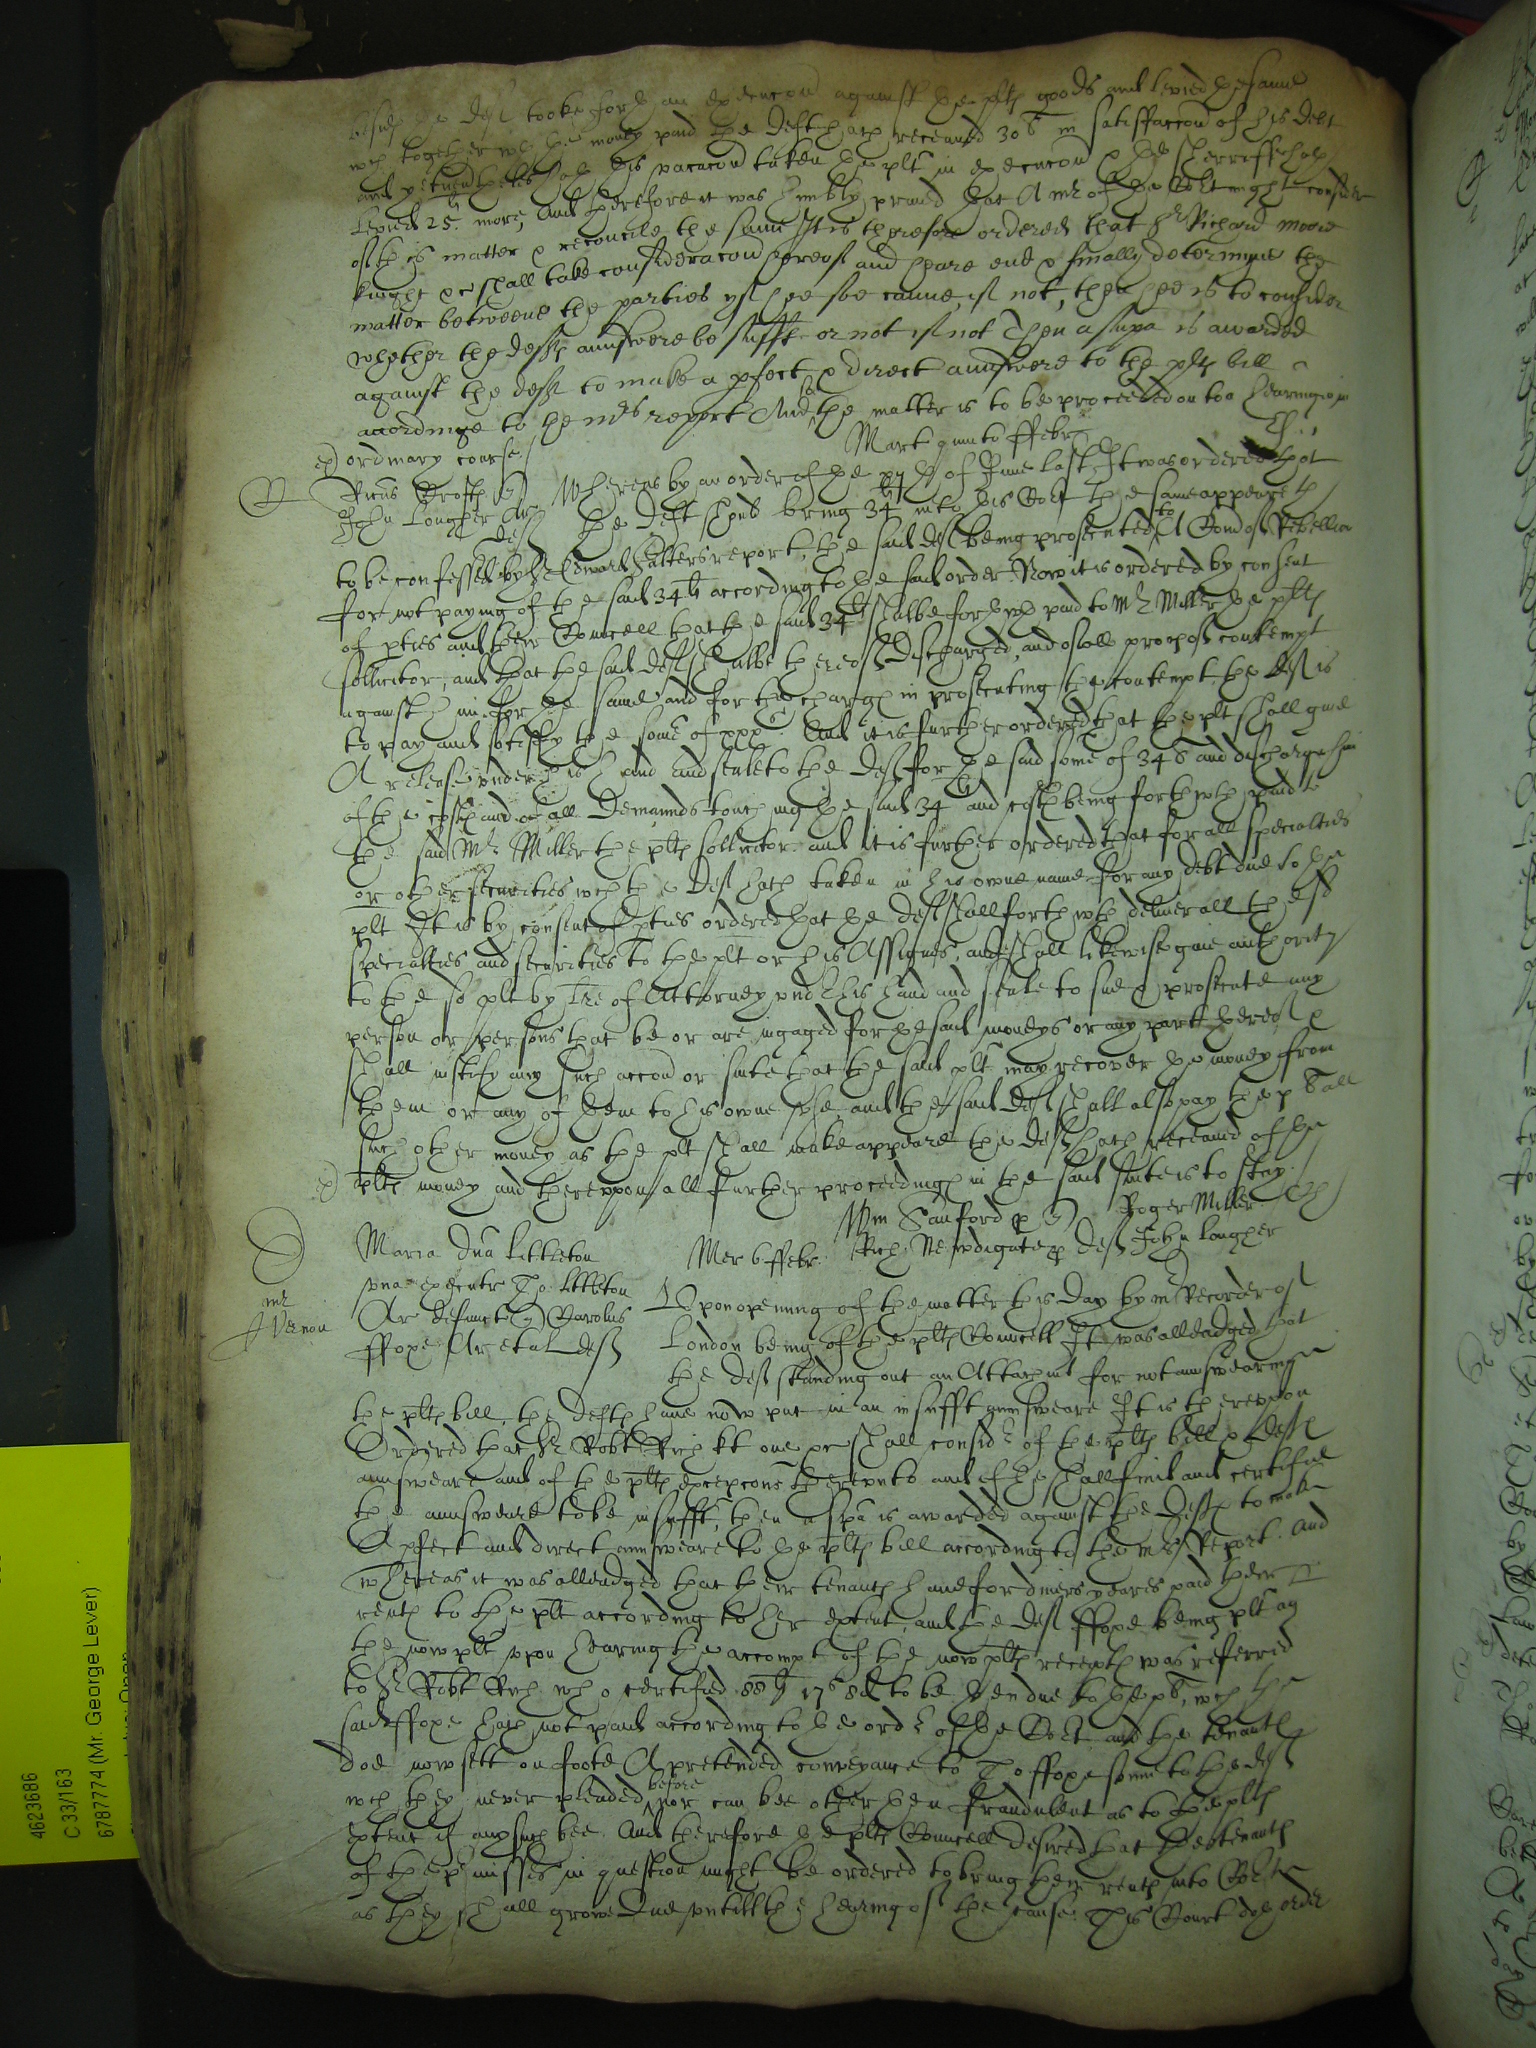 besides the deft tooke forth an execucon against the plts goods and levied the same
wch together wth the money paid the deft hath receaued 30s in satisfaccon of his debt
and yet hath this vacacon taken the plt in execucon & the Sherriffe hath
Levied 25li more, And therefore it was humbly praied that A mr of the Co:rt might consider
of this matter & reconcile the same It is therefore ordered that Sr Richard Moore
knight &c shall take consideracon hereof and heare end & finally determyne the
matter betweene the parties yf hee soe cann, if not, then hee is to consider
whether the defts aunswere be sufft or not if not Then a supa is awarded
against the deft to make a pfect & direct aunswere to the plts bill
accordinge to the mrs report And soe the matter is to be proceeded on to a hearinge in
ordinary course
Mart quinto ffebr
John Lougher Ar deft
Whereas by an order of the xvijth of June last It was ordered that
the deft should bring 34li into this Co:rt the same appeareth
to be confessed by Sr Edward Salters report, the said deft being prosecuted to A Com of Rebellion
for not paying of the said 34li according to the said order. Now it is ordered by consent
of pties and their Councell that the said 34li shalbe forthwth paid to Mr Miller the plts
sollicitor, and that the said deft shalbe thereof discharged, and of all proces of contempt
against him for the same and for the charges in prosecuting the contempt the deft is
to pay and satisfy the some of xxxs And it is further ordered that the plt shall giue
A release vnder his hand and seale to the deft for the said some of 34li and discharge him
of the costs and of all Demaunds touching the said 34li and costs being forthwth paid to
the said Mr Miller the plts sollicitor. and it is further ordered that for all specialties
or other securities wch the deft hath taken in his owne name for any debt due to the
plt It is by consent of pties ordered that the deft shall forthwth deliuer all the sd
specialties and securities to the plt or his Assignes, and shall likewise giue authority
to the sd plt by lre of Attorney vnder his hand and seale to sue & prosecute any
person or persons that be or are ingaged for the said moneys or any part thereof &
shall iustify any such accon or suite that the said plt may recover the money from
them or any of them to his owne vse, and the said deft shall also pay the plt all
such other money as the plt shall make appeare the deft hath receaued of the
plts money and therevpon all further proceedings in the said suite is to stay.
Wm Sanford p Roger Miller
Rich: Newdigate p deft John Lougher
Mer 6 ffebr.
Maria Dna Littleton
vna executr Tho: Littleton
Ar defuncti Carolus
ffoxe Ar et al defts
mr
Vernon
Vpon opening of the matter this day by mr Recorder of
London being of the plts Councell It was alleadged that
the deft standing out an Attachmt for not answearing
the plts bill, the defts haue now put in an insufft aunsweare It is therevpon
Ordered that Sr Robt Rich kt one &c shall considr of the plts bill & defts
aunsweare and of the plts excepcons therevnto and if he shall find and certifie
the aunsweare to be insufft, then a spa is awarded against the defts to make
A pfect and direct aunsweare to the plts bill according to the mrs Report. And
whereas it was alleadged that their tenants haue for diuers yeares paid their
rents to the plt according to her extent, and the deft ffoxe being plt agt
the now plt vpon hearing the accompt of the now plts receipts was referred
to Sr Robt Rich who certified 88li 17s 8d to be then due to the plt, wch the
said ffoxe hath not paid according to the ordr of the Co:rt and the tenants
doe now sett on foote A pretended conveyance to Tho ffoxe sonne to the deft
wch they never pleaded before nor can bee other then fraudulent as to the plts
extent if any such bee. And therefore the plts Councell desired that the tenants
of the pmisses in question might be ordered to bring their rents into Co:rt
as they shall growe due vntill the hearing of the cause. This Court doth order
4623686
C 33/163
6787774 (Mr. George Lever)